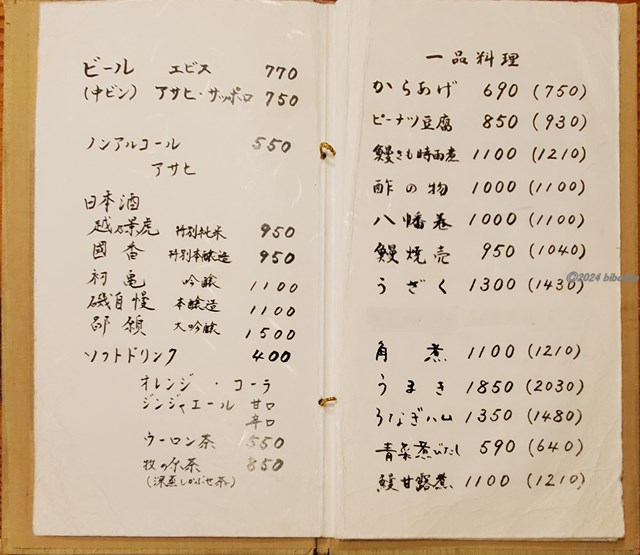 ビール エビス 770
(中ビン) アサヒ・サッポロ 750
ノンアルコール 550
アサヒ
日本酒
越乃景虎 特別純米 950
國香 特別本醸造 950
初亀 吟醸 1100
磯自慢 本醸造 1100
大吟醸 1500
ソフトドリンク 400
オレンジ・コーラ
ジンジャエール 甘口
辛口
ウーロン茶 550
牧の原茶 850
(深蒸しかぶせ茶)
一品料理
からあげ 690 (750)
ピーナツ豆腐 850 (930)
鰻きも時雨煮 1100 (1210)
酢の物 1000 (1100)
八幡巻 1000 (1100)
鰻焼売 950 (1040)
うざく 1300 (1430)
角煮 1100 (1210)
うまき 1850 (2030)
うなぎハム 1350 (1480)
青菜煮びたし 590 (640)
鰻甘露煮 1100 (1210)
©2024